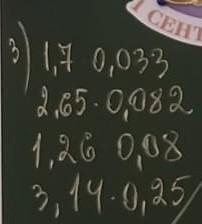 1 СЕНТ
3) 1,7 0,033
2,65 · 0,082
1,26 0,08
3,14 · 0,25